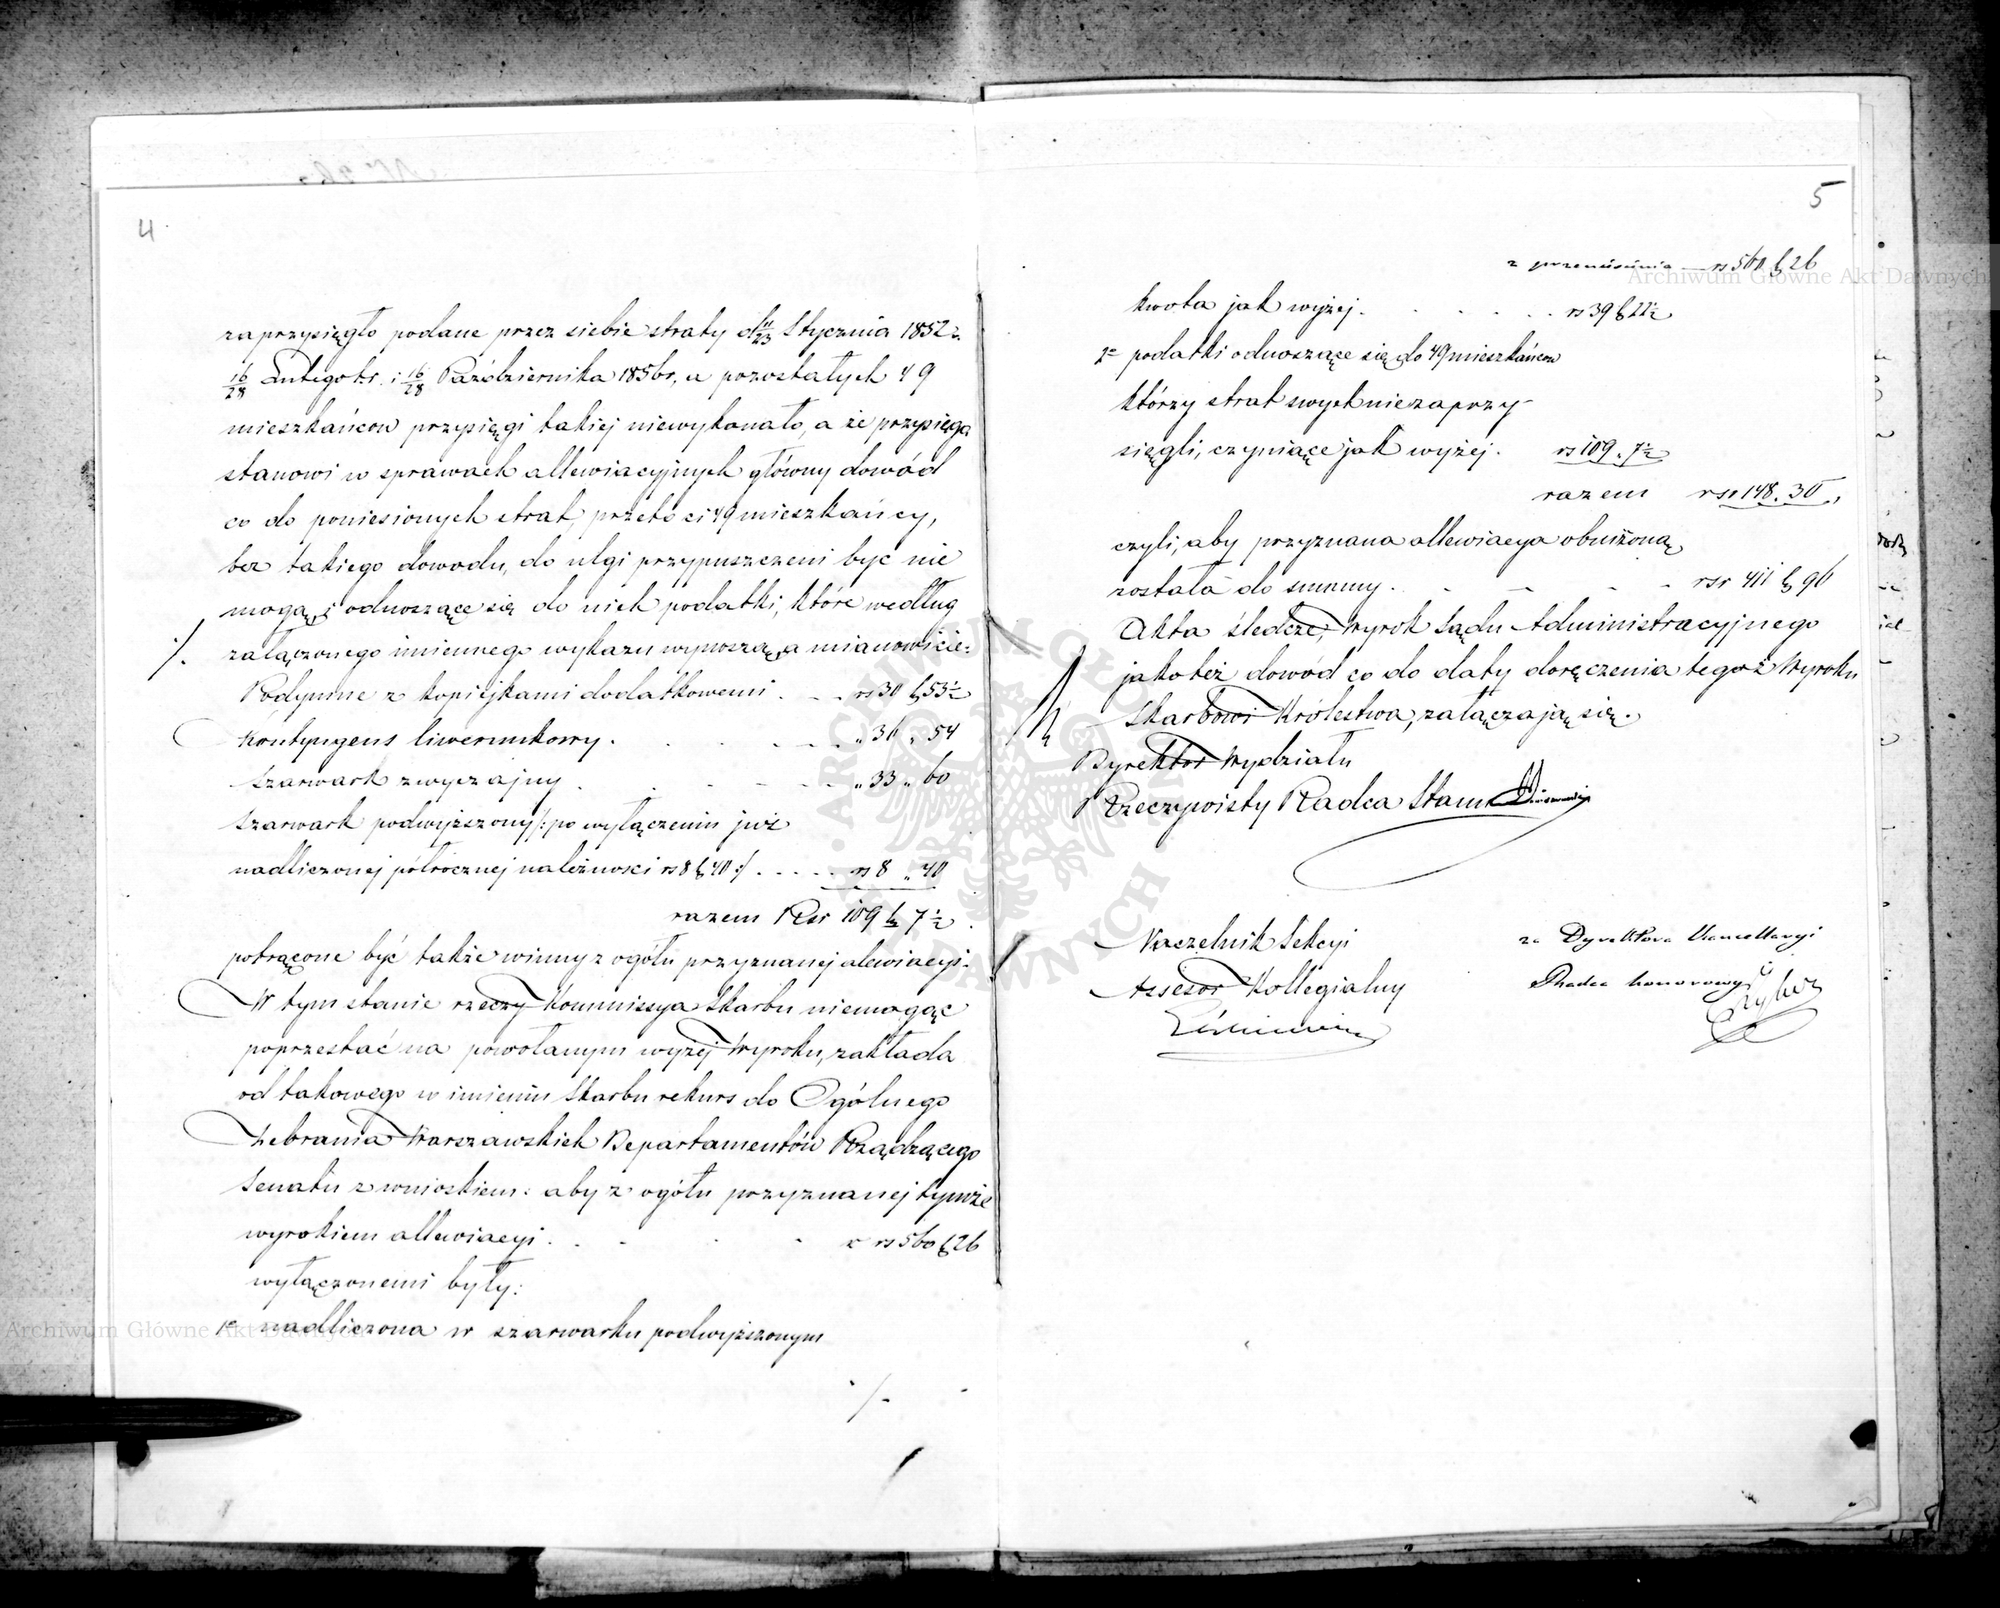 4
zaprzysięgło podane przez siebie straty d 11/23 Stycznia 1852 r.
16/28 Lutego t.r. i 16/28 Października 1856 r, a pozostałych 49
mieszkańcow przysięgi takiej niewykonało, a że przysięga
stanowi w sprawach allewiacyjnych główny dowód
co do poniesionych strat, przeto ci 49 mieszkańcy,
bez takiego dowodu, do ulgi przypuszczeni być nie
mogą, i odnoszące się do nich podatki, które według
./. załączonego imiennego wykazu wynoszą, a mianowicie:
Podymne z kopiejkami dodatkowemi . . . rs 30 k 53 ½
Kontyngens liwerunkowy . . . . . . „ 36 „ 54
Szarwark zwyczajny . . . . . . „ 33 „ 60
Szarwark podwyższony /: po wyłączeniu już
nadliczonej półrocznej należności rs 8 k 40 :/ . . . . . rs 8 „ 40
razem Rsr 109 k 7 ½ .
potrącone być także winny z ogółu przyznanej alewiacyi.
W tym stanie rzeczy Kommissya Skarbu niemogąc
poprzestać na powołanym wyżej Wyroku, zakłada
od takowego w imieniu Skarbu rekurs do Ogólnego
Zebrania Warszawskich Departamentów Rządzącego
Senatu z wnioskiem: aby z ogółu przyznanej tymże
wyrokiem allewiacyi . . . . rs 560 k 26
wyłączonemi były:
1e nadliczona w szarwarku podwyższonym
./.
5
z przeniesienia — rs 560 k 26
kwota jak wyżej . . . . . . . rs 39 k 22 ½
2e podatki odnoszące się do 49 mieszkańcow
którzy strat swych niezaprzy-
sięgli, czyniące jak wyżej . rs 109 „ 7 ½
razem rsr 148 . 30 .,
czyli, aby przyznana allewiacya obniżoną
została do summy . . . . . rsr 411 k 96
Akta śledcze, Wyrok Sądu Administracyjnego
jakoteż dowód co do daty doręczenia tegoż Wyroku
Skarbowi Królestwa, załączają się.
Dyrektor Wydziału
Rzeczywisty Radca Stanu
Naczelnik Sekcyi
Assesor Kollegialny
za Dyrektora Kancellaryi
Radca honorowy
Archiwum Główne Akt Dawnych
Archiwum Główne Akt Dawnych
ARCHIWUM GŁÓWNE AKT DAWNYCH